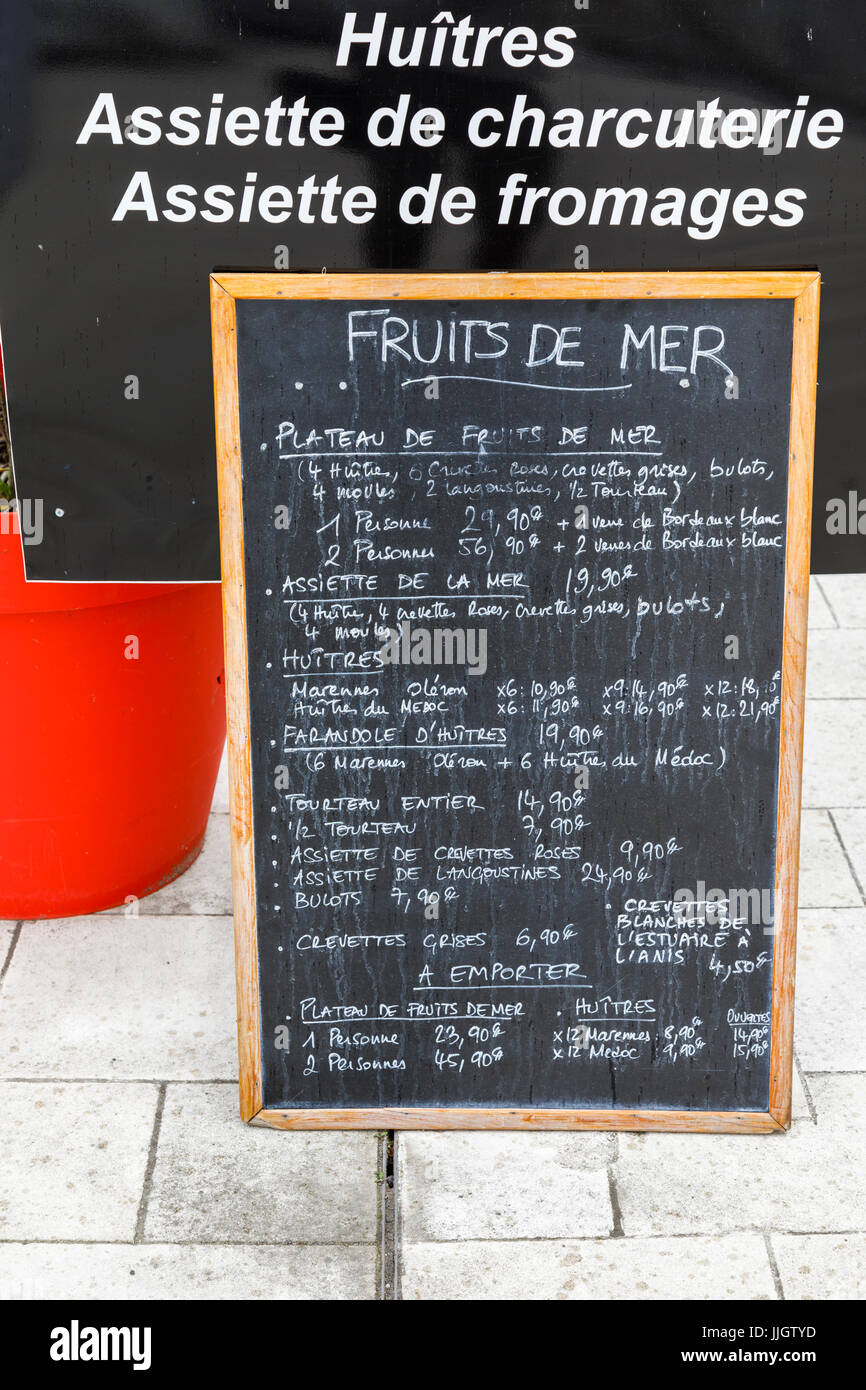 Huîtres
Assiette de charcuterie
Assiette de fromages
FRUITS DE MER
. PLATEAU DE FRUITS DE MER
(4 Huître, 6 Crevettes Roses, crevettes grises, bulots,
4 moules, 2 langoustines, 1/2 Tourteau)
1 Personne 29,90€ + 1 verre de Bordeaux blanc
2 Personnes 56,90€ + 2 verres de Bordeaux blanc
. ASSIETTE DE LA MER 19,90€
(4 Huître, 4 crevettes Roses, crevettes grises, bulots,
4 moules)
. HUÎTRES
Marennes Oléron x6:10,90€ x9:14,90€ x12:18,
Huîtres du MEDOC x6:11,90€ x9:16,90€ x12:21,90€
. FARANDOLE D'HUÎTRES 19,90€
(6 Marennes Oléron + 6 Huîtres du Médoc)
. TOURTEAU ENTIER 14,90€
. 1/2 TOURTEAU 7,90€
. ASSIETTE DE CREVETTES ROSES 9,90€
. ASSIETTE DE LANGOUSTINES 24,90€
. BULOTS 7,90€
. CREVETTES GRISES 6,90€
. CREVETTES
BLANCHES DE
L'ESTUAIRE À
L'ANIS 4,50€
A EMPORTER
. PLATEAU DE FRUITS DE MER
1 Personne 23,90€
2 Personnes 45,90€
. HUÎTRES OUVERTES
x12 Marennes: 8,90€ 14,90€
x12 Medoc : 9,90€ 15,90€
alamy
Image ID: JJGTYD
www.alamy.com